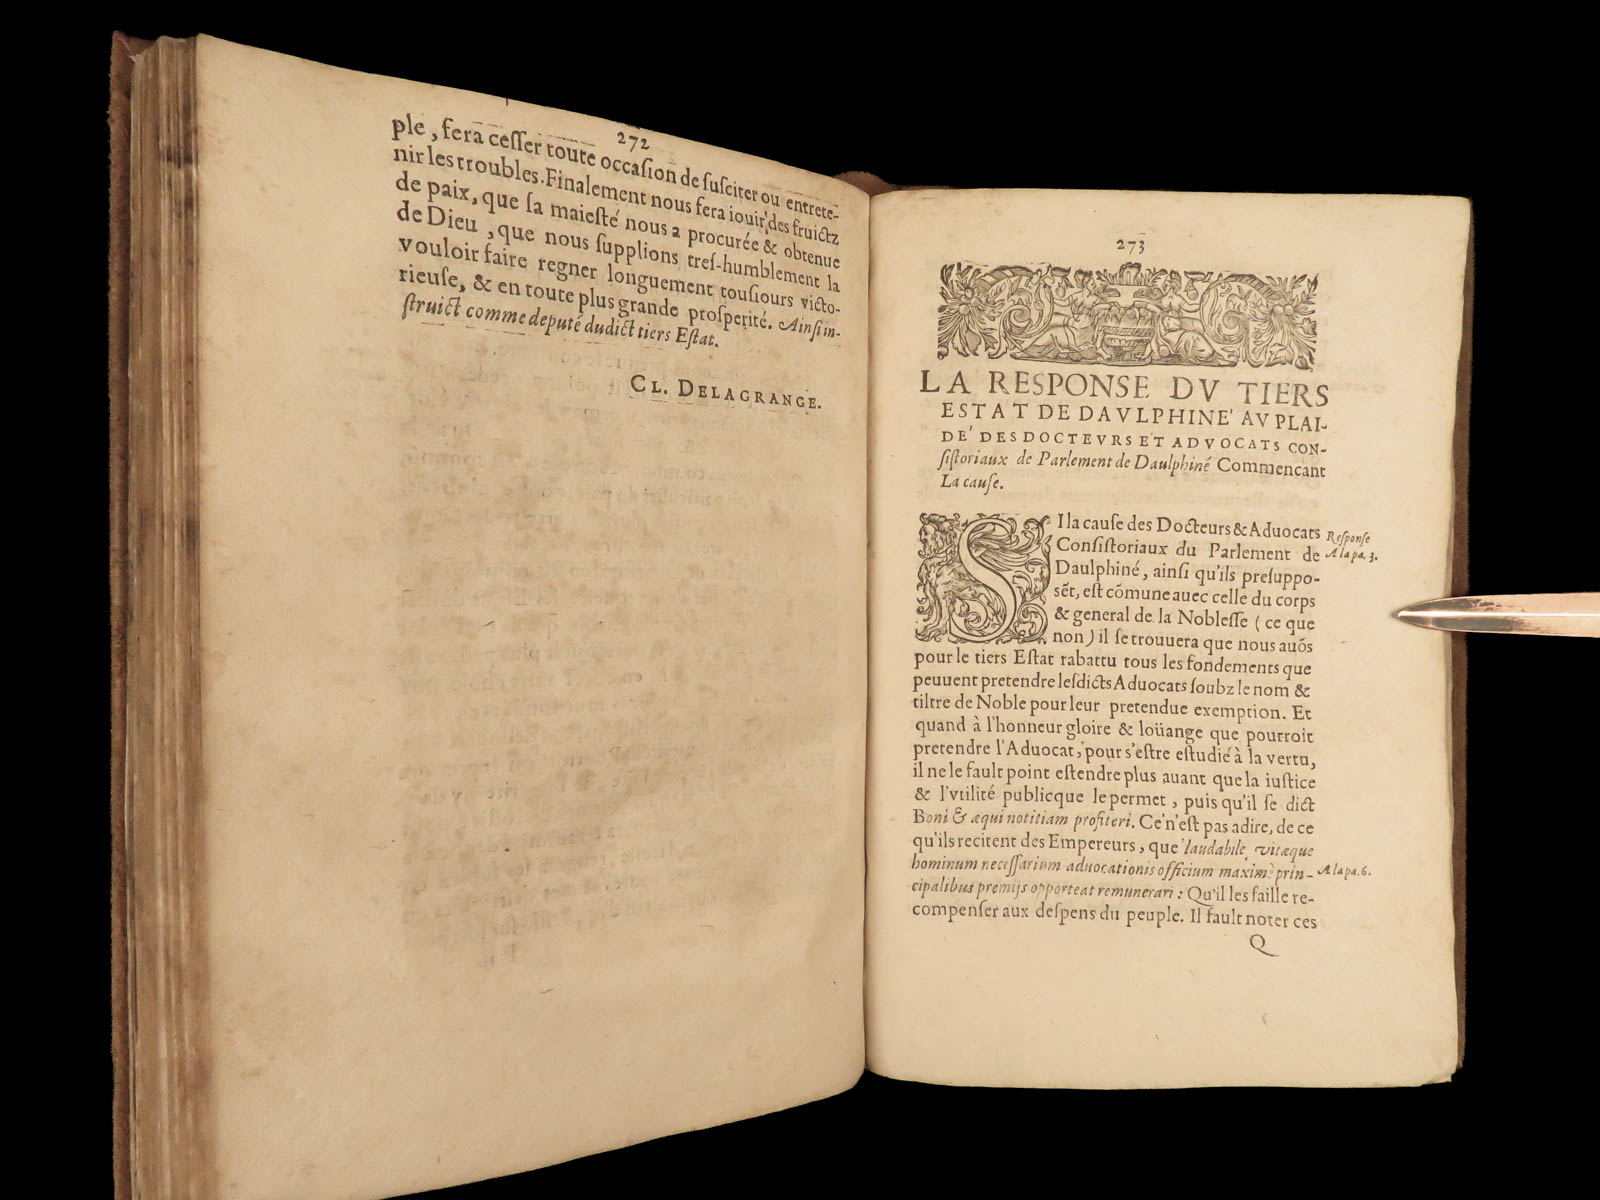 272
ple, ſera ceſſer toute occaſion de ſuſciter ou entrete-
nir les troubles. Finalement nous fera iouir des fruictz
de paix, que ſa maieſté nous a procurée & obtenue
de Dieu, que nous ſupplions treſ-humblement la
vouloir faire regner longuement touſiours victo-
rieuſe, & en toute plus grande proſperité. Ainſi in-
ſtruict comme deputé dudict tiers Eſtat.
CL. DELAGRANGE.
273
LA RESPONSE DV TIERS
ESTAT DE DAVLPHINE' AV PLAI-
DE' DES DOCTEVRS ET ADVOCATS CON-
ſiſtoriaux de Parlement de Daulphiné Commencant
La cauſe.
SI la cauſe des Docteurs & Aduocats
Conſiſtoriaux du Parlement de
Daulphiné, ainſi qu'ils preſuppo-
sẽt, eſt cõmune auec celle du corps
& general de la Nobleſſe (ce que
non) il ſe trouuera que nous auõs
pour le tiers Eſtat rabattu tous les fondements que
peuuent pretendre leſdicts Aduocats ſoubz le nom &
tiltre de Noble pour leur pretendue exemption. Et
quand à l'honneur gloire & loüange que pourroit
pretendre l'Aduocat, pour s'eſtre eſtudié à la vertu,
il ne le fault point eſtendre plus auant que la iuſtice
& l'vtilité publicque le permet, puis qu'il ſe dict
Boni & æqui notitiam profiteri. Ce n'eſt pas adire, de ce
qu'ils recitent des Empereurs, que laudabile, vitæque
hominum neceſſarium aduocationis officium maximè prin-
cipalibus premijs opporteat remunerari: Qu'il les faille re-
compenſer aux deſpens du peuple. Il fault noter ces
Q
Reſponſe
A la pa. 3.
A la pa. 6.